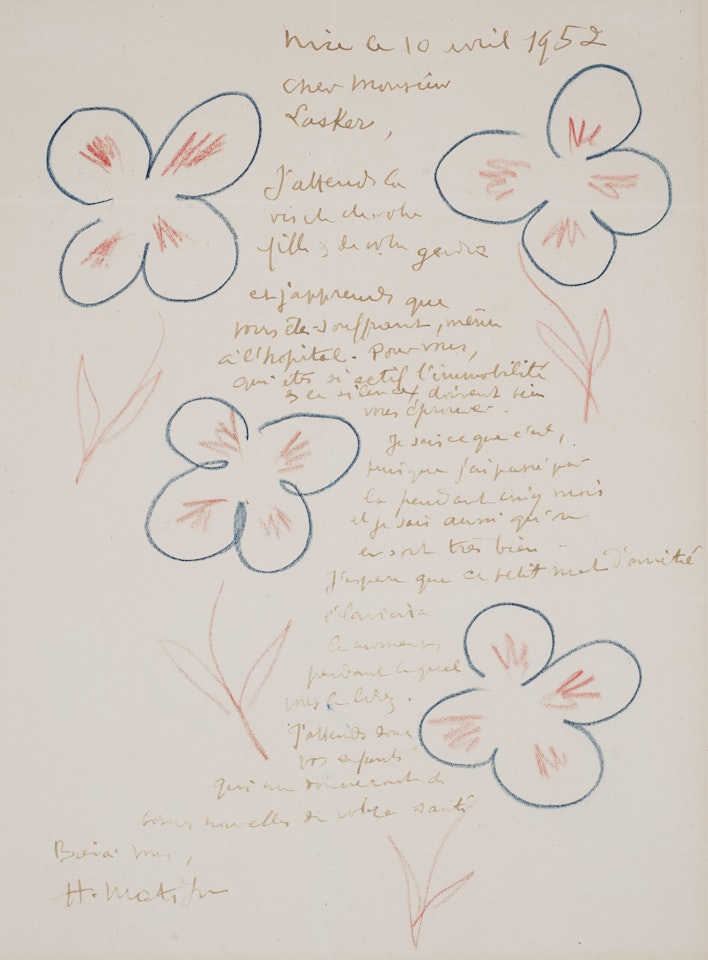 Nice le 10 avril 1952
Cher Monsieur
Lasker,
J'attends la
visite de votre
fille & de votre gendre
et j'apprends que
vous êtes souffrant, même
à l'hopital. Pour vous,
qui êtes si actif l'immobilité
& ce silence doivent bien
vous éprouver.
Je sais ce que c'est,
puisque j'ai passé par
là pendant cinq mois
et je sais aussi qu'on
en sort très bien
J'espère que ce petit mot d'amitié
éclaircira
le moment
pendant lequel
vous le lirez.
J'attends donc
vos enfants
qui me donneront de
bonnes nouvelles de votre santé
Bon à vous,
H. Matisse